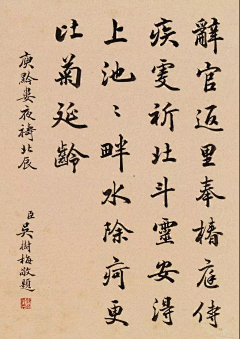 辭官返里奉椿庭侍
疾虔祈北斗靈安得
上池〻畔水除痾更
比菊延齡
庾黔婁夜禱北辰
臣吳樹梅敬題